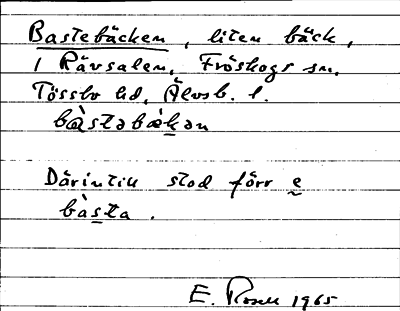 Bastebäcken, liten bäck,
i Rävsalen, Fröskogs sn,
Tössbo hd, Älvsb. l.
bàstəbæ̀kən
Därintill stod förr e
bàsta.
E. Rosell 1965